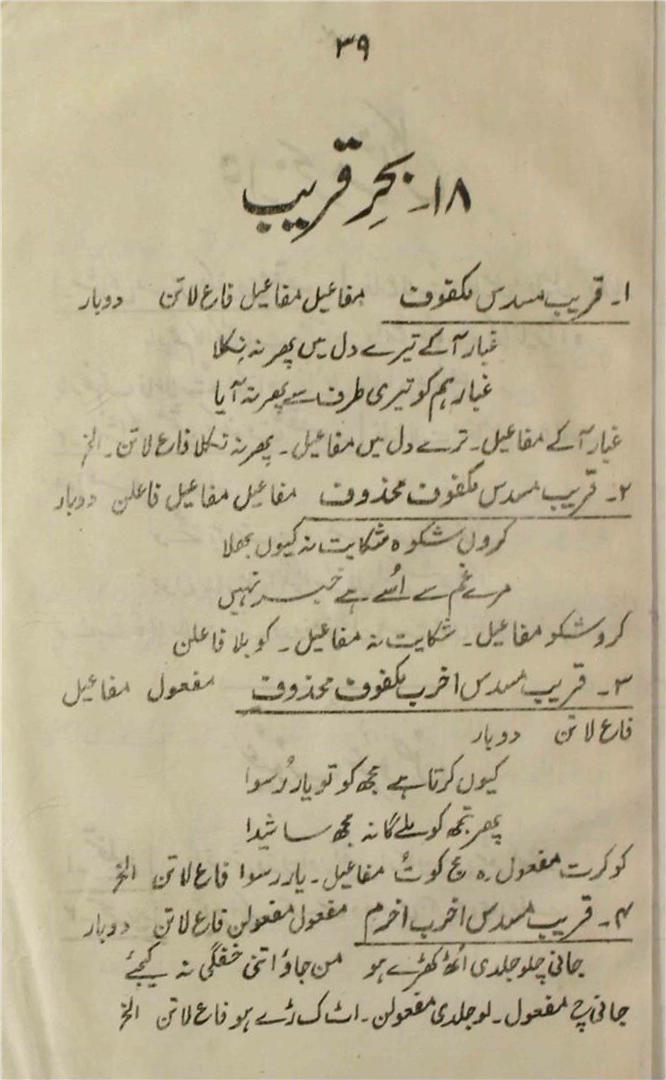 ۳۹
۱۸۔ بحرِ قریب
۱۔ قریب مسدس مکفوف مفاعیل مفاعیل فاع لاتن دوبار
غبار آکے تیرے دل میں پھر نہ نِکلا
غبار ہم کو تیری طرف سے پھر نہ آیا
غبار آکے مفاعیل۔ ترے دل میں مفاعیل۔ پھر نہ نکلا فاع لاتن۔ الخ
۲۔ قریب مسدس مکفوف محذوف مفاعیل مفاعیل فاعلن دوبار
کروں شکوہ شکایت نہ کیوں بھلا
مرے غم سے اُسے ہے خبر نہیں
کروشکو مفاعیل۔ شکایت نہ مفاعیل۔ کو بلا فاعلن
۳۔ قریب مسدس اخرب مکفوف محذوف مفعول مفاعیل
فاع لاتن دوبار
کیوں کرتا ہے مجھ کو تو یار رُسوا
پھر تجھ کو ملے گا نہ مجھ سا شیدا
کو کرت مفعول۔ ہ مج کو تُ مفاعیل۔ یار رسوا فاع لاتن الخ
۴۔ قریب مسدس اخرب اخرم مفعول مفعولن فاع لاتن دوبار
جانی چلو جلدی اُٹھ کھڑے ہو من جاؤ اتنی خفگی نہ کیجئے
جانی چ مفعول۔ لو جلدی مفعولن۔ اٹ ک ڑے ہو فاع لاتن الخ